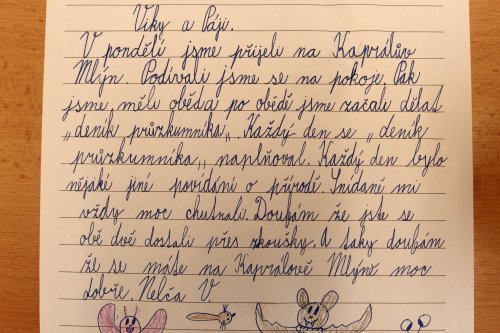 Viky a Páji.
V pondělí jsme přijeli na Kaprálův
Mlýn. Podívali jsme se na pokoje. Pak
jsme měli oběd a po obědě jsme začali dělat
„deník průzkumníka„. Každý den se „deník
průzkumníka„ naplňoval. Každý den bylo
nějaké jiné povídání o přírodě. Snídaně mi
vždy moc chutnali. Doufám že jste se
obě dvě dostali přes zkoušky. A taky doufám
že se máte na Kaprálově Mlýně moc
dobře. Nelča V.